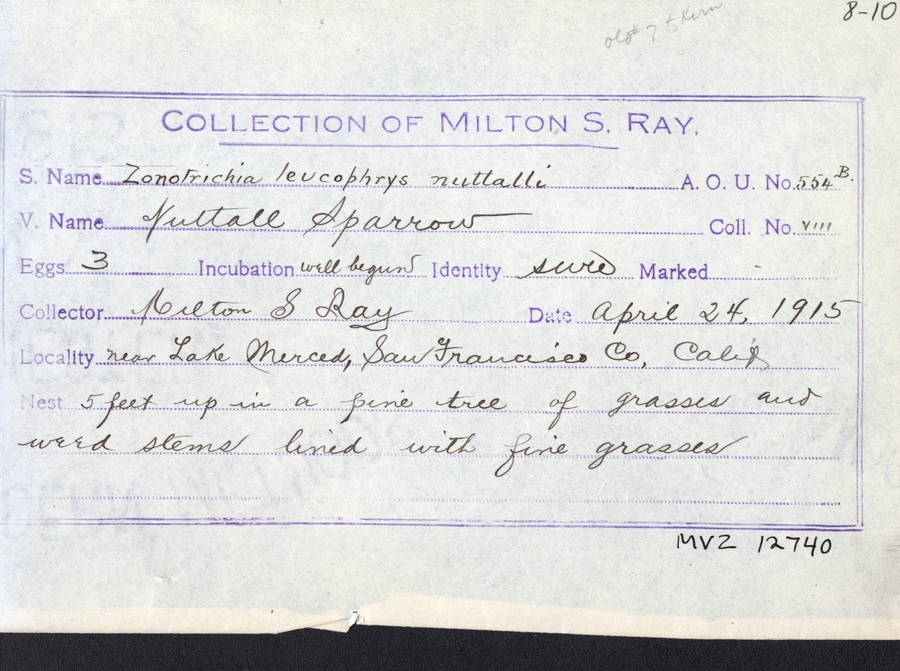 8-10
COLLECTION OF MILTON S. RAY.
S. Name Zonotrichia leucophrys nuttalli A. O. U. No. 554B.
V. Name Nuttall Sparrow Coll. No. VIII
Eggs 3 Incubation well begun Identity sure Marked -
Collector Milton S Ray Date April 24, 1915
Locality near Lake Merced, San Francisco Co, Calif
Nest 5 feet up in a pine tree of grasses and
weed stems lined with fine grasses
MVZ 12740